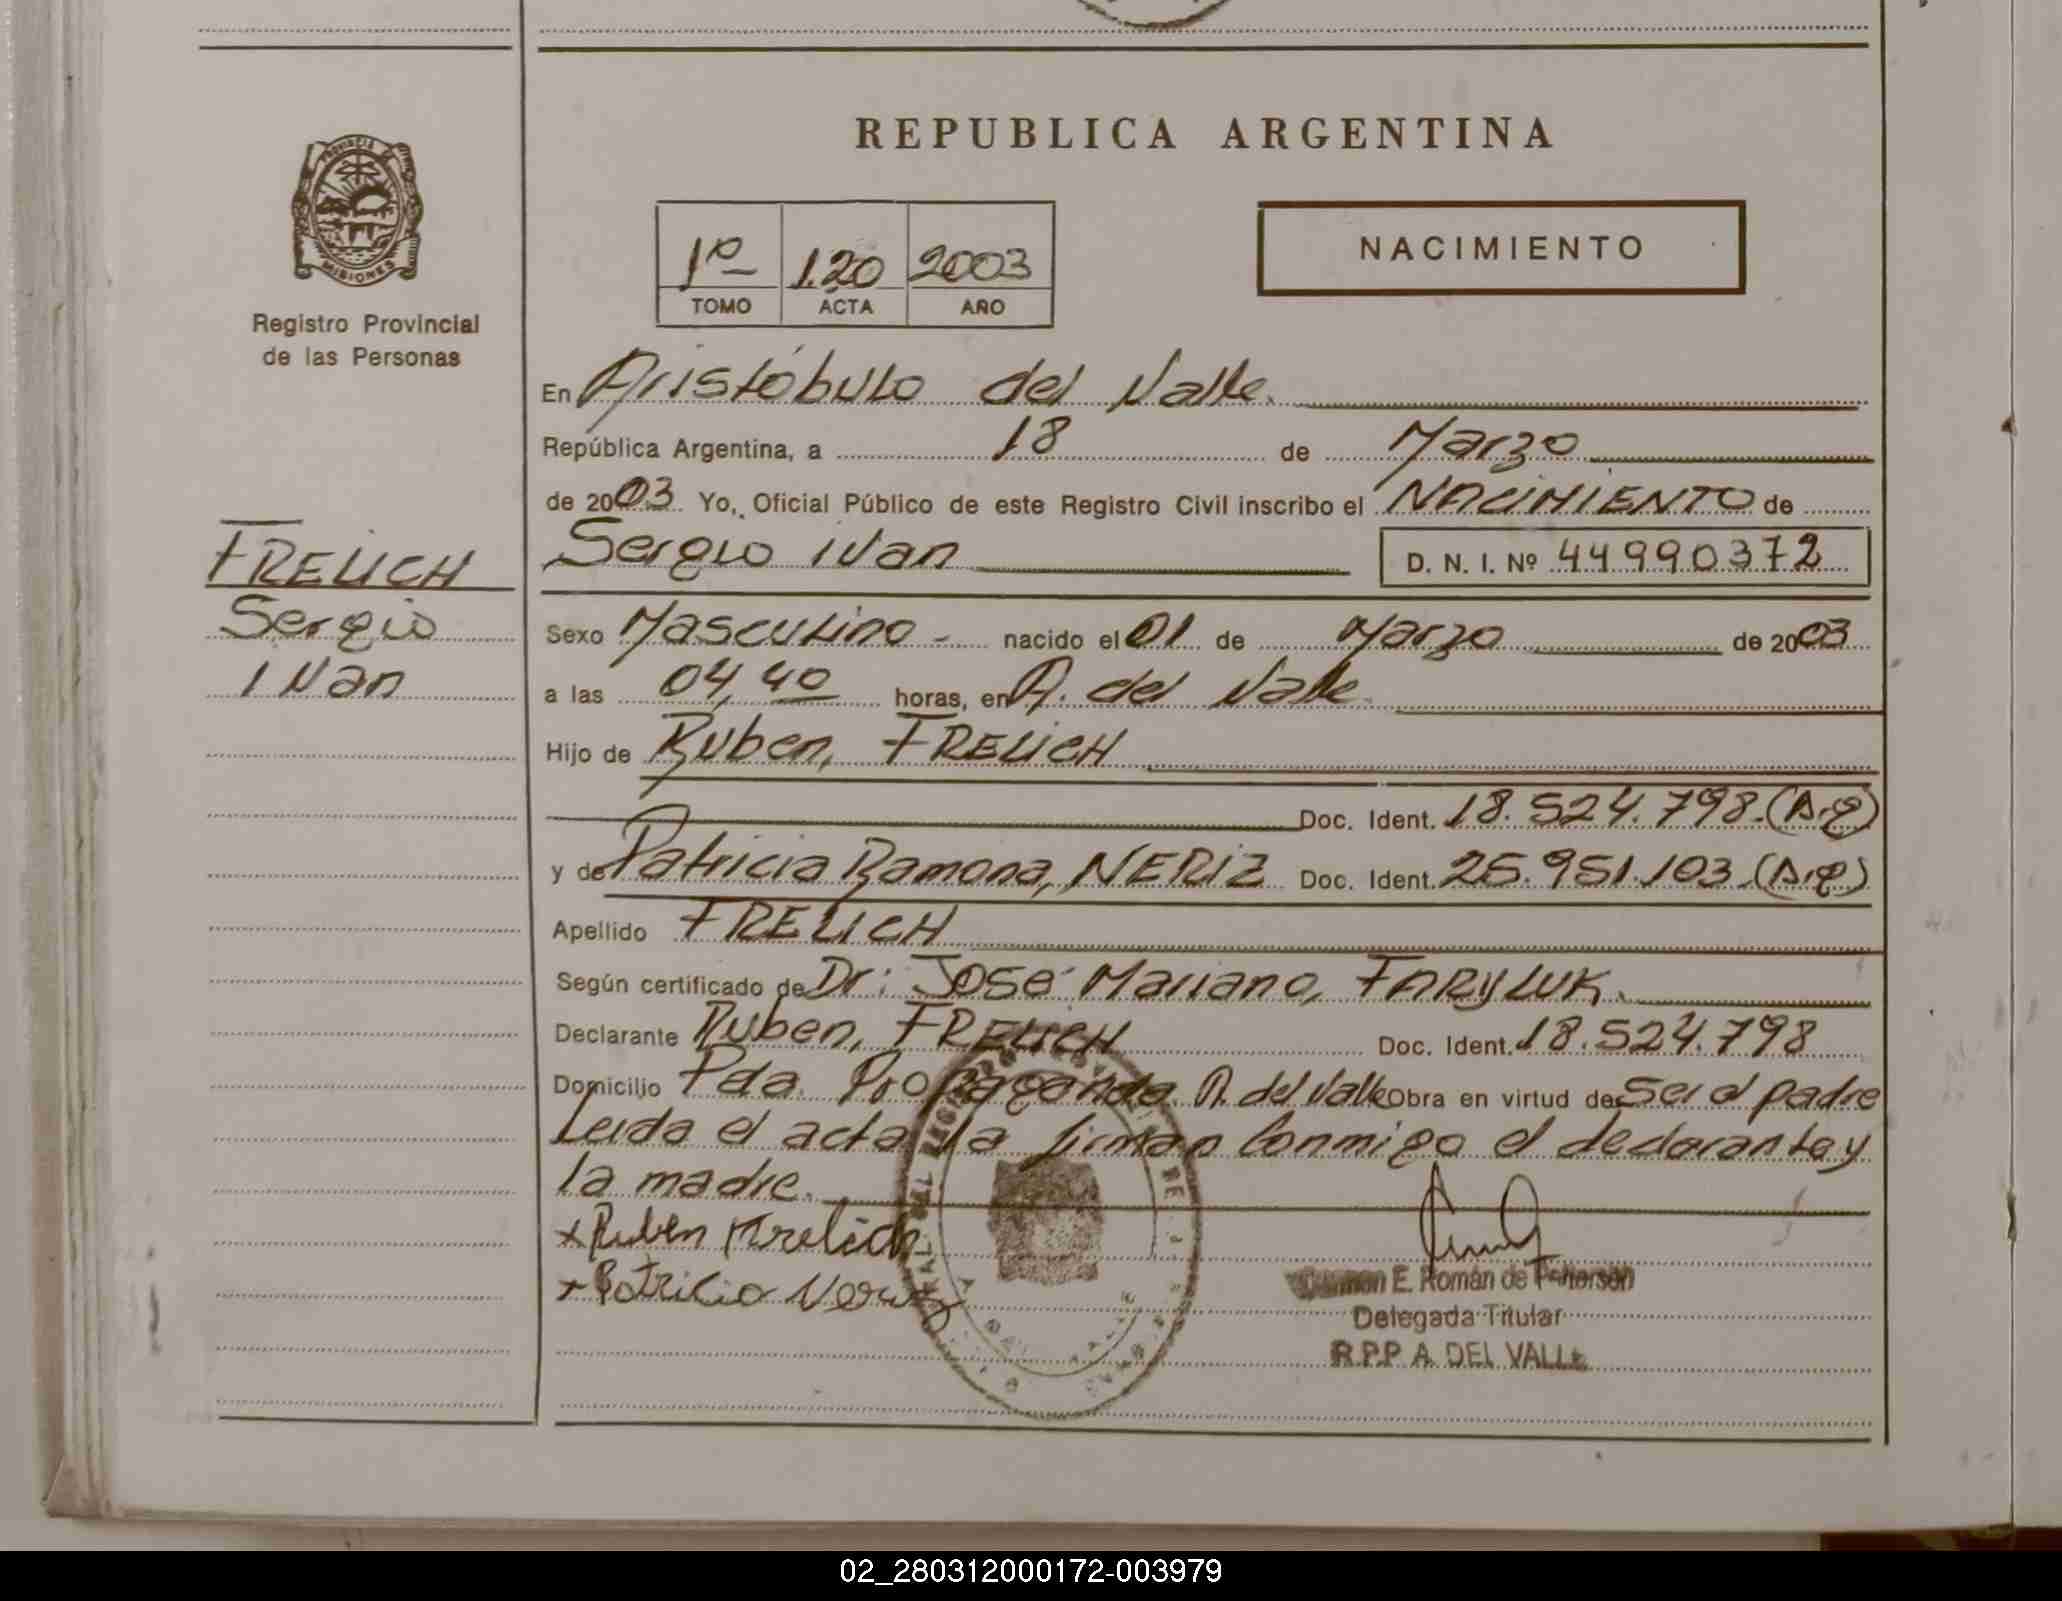 PROVINCIA DE
MISIONES
Registro Provincial
de las Personas
FRELICH
Sergio
Ivan
REPUBLICA ARGENTINA
1º 120 2003
TOMO ACTA AÑO
NACIMIENTO
En Aristóbulo del Valle.
República Argentina, a 18 de Marzo
de 2003 Yo, Oficial Público de este Registro Civil inscribo el NACIMIENTO de
Sergio Ivan D. N. I. Nº 44990372
Sexo Masculino - nacido el 01 de Marzo de 2003
a las 04,40 horas, en A. del Valle.
Hijo de Ruben, FRELICH
Doc. Ident. 18.524.798.
y de Patricia Ramona, NERIZ Doc. Ident. 25.951.103
Apellido FRELICH
Según certificado de Dr: José Mariano, FARYLUK.
Declarante Ruben, FRELICH Doc. Ident. 18.524.798
Domicilio Pda. Propaganda. A. del Valle Obra en virtud de Ser el padre
Leida el acta la firman Conmigo el declarante y
la madre.
x Ruben Frelich
x Patricia Neriz
E. Román de
Delegada Titular
R.P.P A. DEL VALLE
02_280312000172-003979